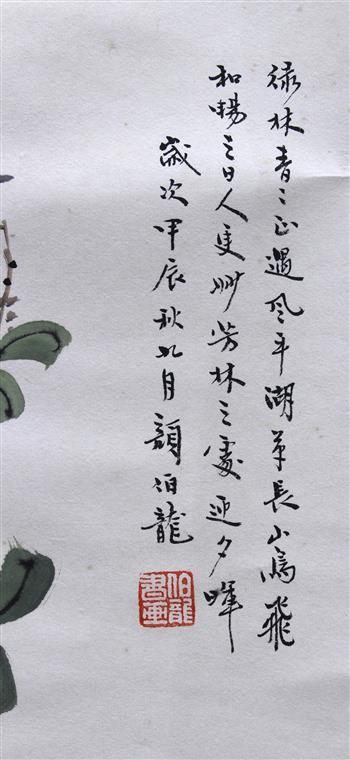 禄林青〻正遇风平湖草長山鳥飛
和暢之日人更妙芳林之處迎夕暉
歲次甲辰秋九月顏伯龍
伯龍
書畫